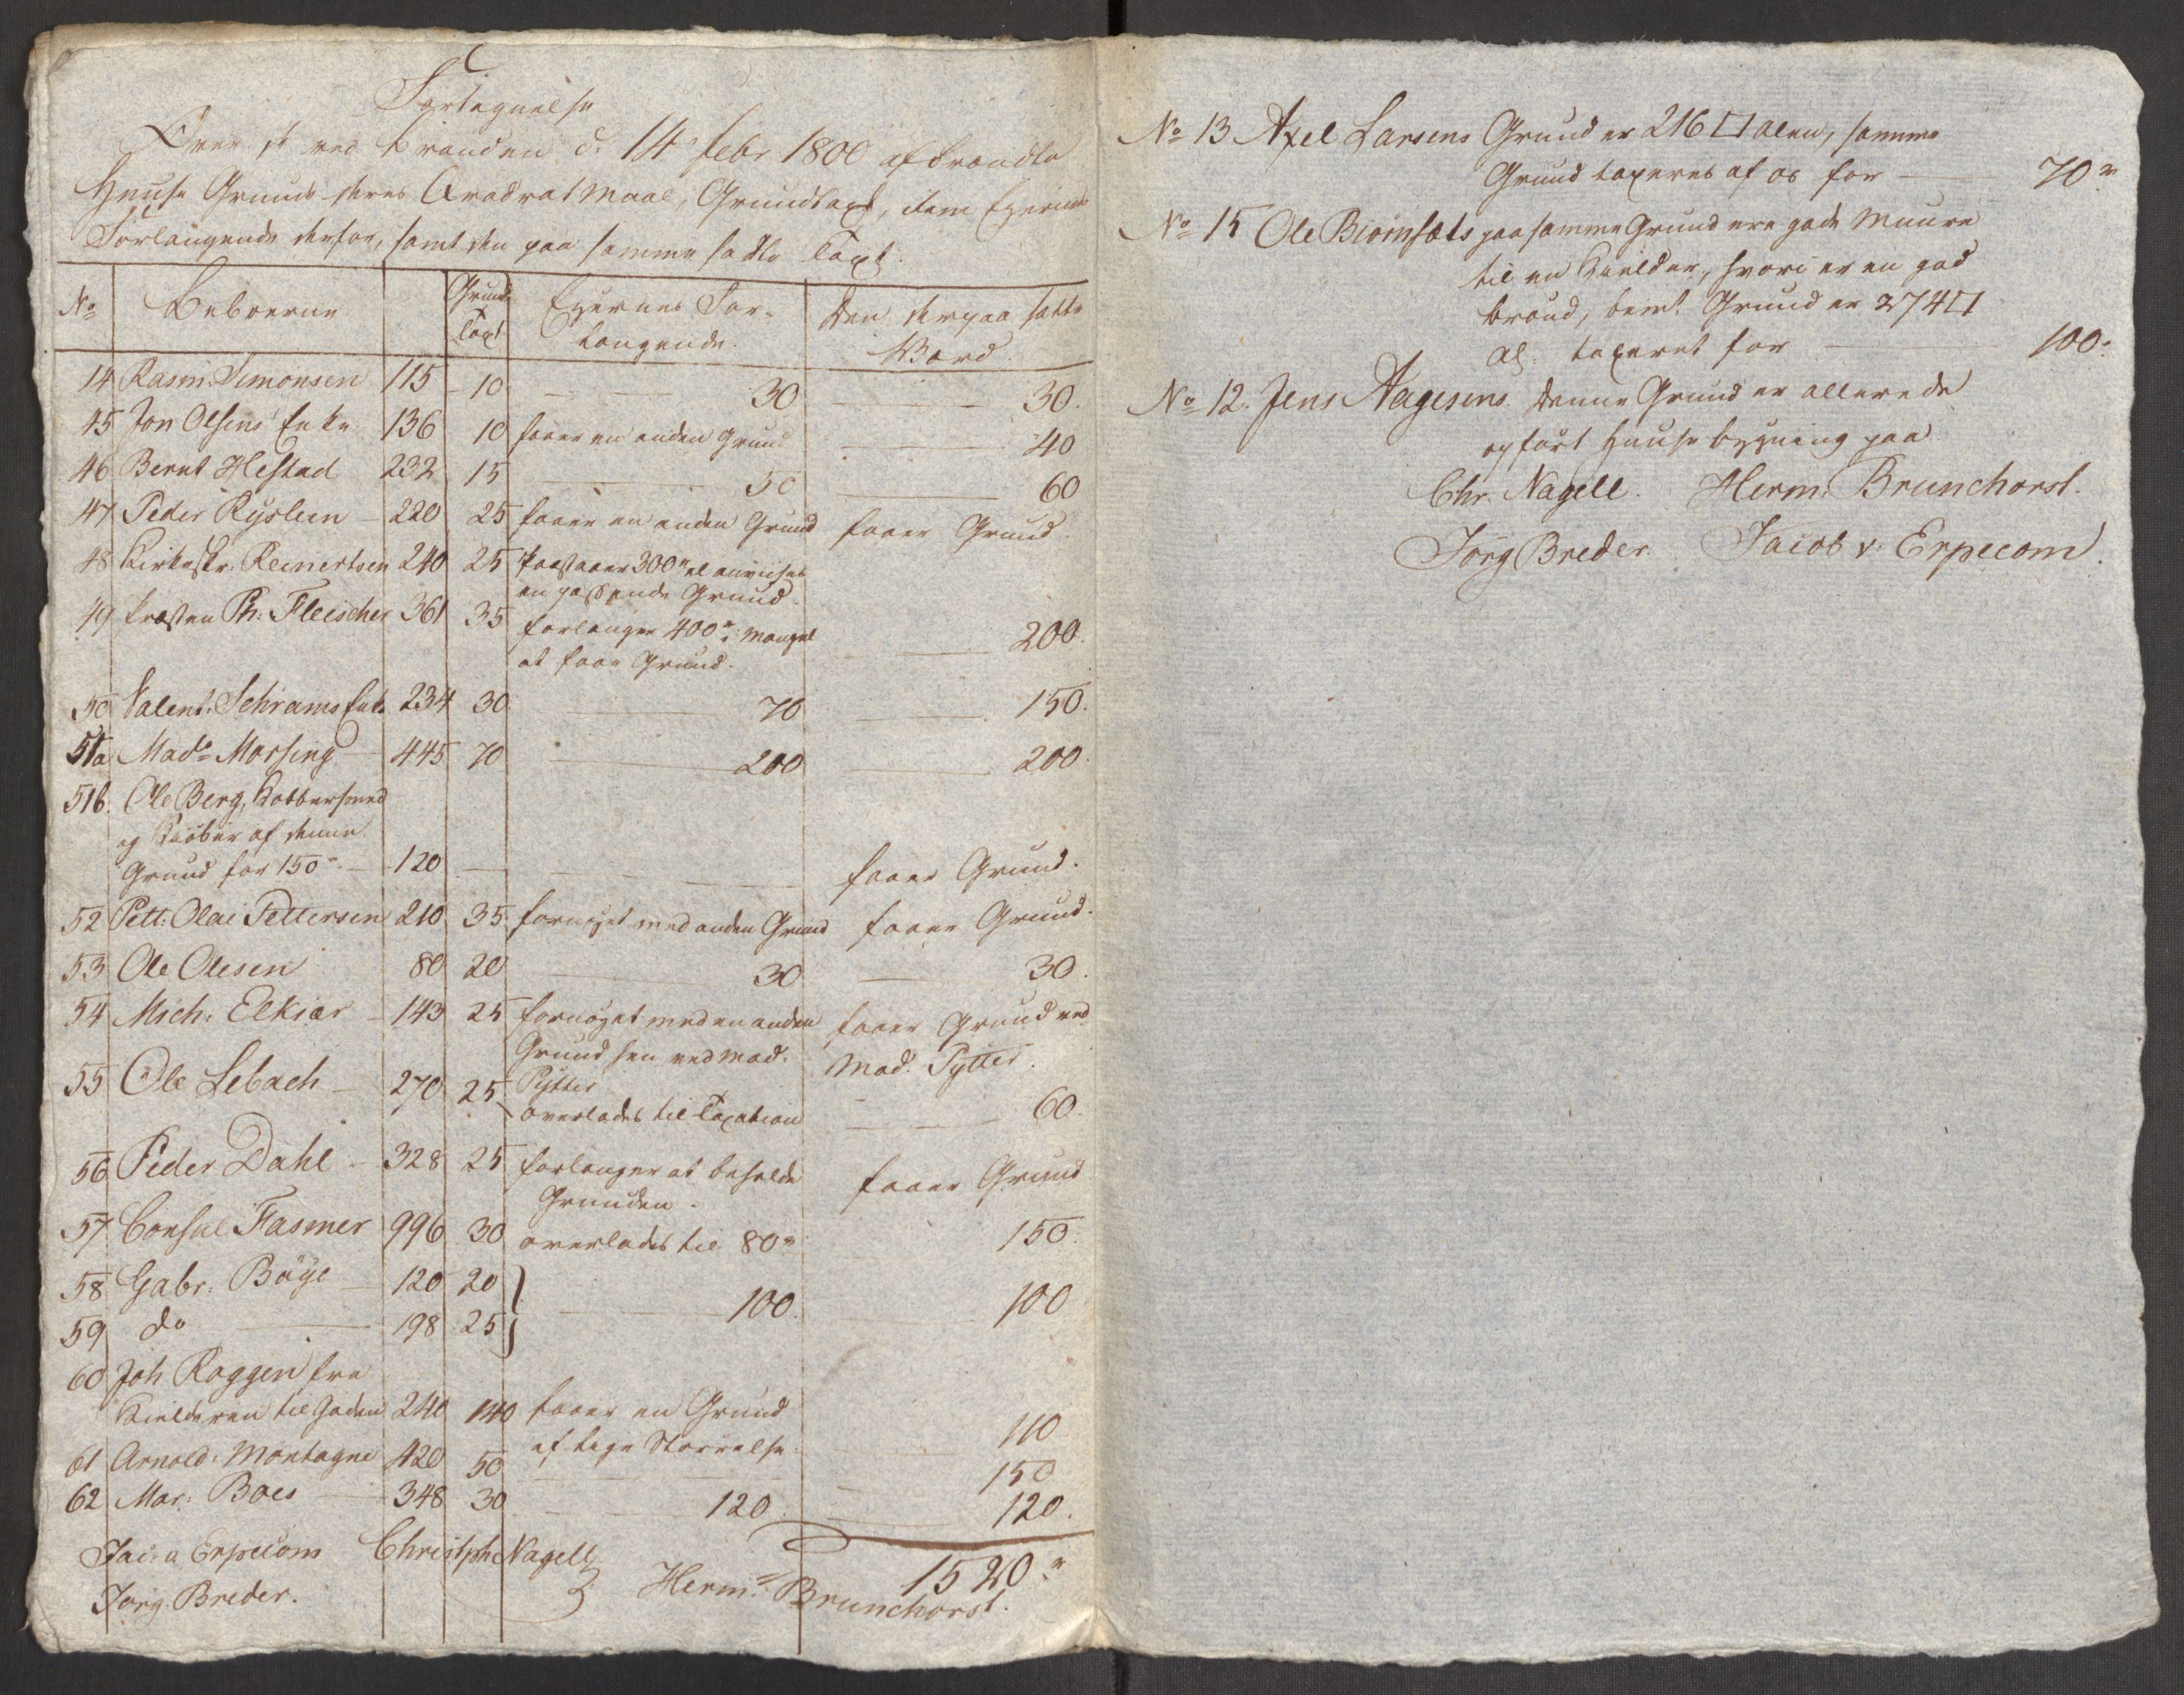 Fortegnelse
Over de ved branden d. 14 febr 1800 afbrændte
Huuse Grunde deres Qvadrat Maal, Grundtaxt, item Eyernes
Forlangende derfor, samt den paa samme satte Taxt.
No Beboerne Grund Taxt Eyernes Forlangende. Den derpaa satte Værd.
14 Rasm. Simonsen 115 10 30 30.
45 Jon Olsens Enke 136 10 faaer en anden Grund 40
46 Bernt Hestad 232 15 50 60
47 Peder Ryslein 220 25 faaer en anden Grund faaer Grund.
48 Kirkeskr. Reinertsen 240 25 Paastaaer 300 el anviises
en passende Grund.
49 Præsten Ph: Fleischer 361 35 forlanger 400 i mangel 200.
at faae Grund.
50 Valent. Schrams Enke 234 30 70 150.
51a Made Morsing 445 70 200 200.
51b. Ole Berg, Kobbersmed
og Kiøber af denne
Grund for 150 120 faaer Grund.
52 Pett: Olai Pettersen 210 35 fornøyet med anden Grund faaer Grund.
53 Ole Olesen 80 20 30 30.
54 Mich: Elkiær 143 25 fornøyet med en anden faaer Grund ved
Grund hen ved Mad. Mad. Pytter.
Pytter
55 Ole Lebach 270 25 overlades til Taxation 60.
56 Peder Dahl 328 25 forlanger at beholde faaer Grund
Grunden.
57 Consul Fasmer 996 30 overlades til 80 150.
58 Gabr: Böÿe 120 20 100 100
59 do 198 25
60 Joh Roggen fra
Kielderen til Gaden 240 140 faaer en Grund 110
af lige Størrelse.
61 Arnold: Montagne 420 50 150
62 Mar: Boes 348 30 120 120.
1520.
Jac: v Erpecom Christph Nagell
Jörg. Breder. Herm: Brunchorst.
No 13 Axel Larsens Grund er 216 □ alen, samme
Grund taxeres af os for 70
No 15 Ole Biørnsets paa samme Grund ere gode Muure
til en Kielder, hvori er en god
brønd, bemt Grund er 274 □
al: taxeret for 100.
No 12. Jens Aagesens. denne Grund er allerede
opført Huuse bygning paa
Chr. Nagell. Herm: Brunchorst.
Jörg Breder. Jacob v: Erpecom.